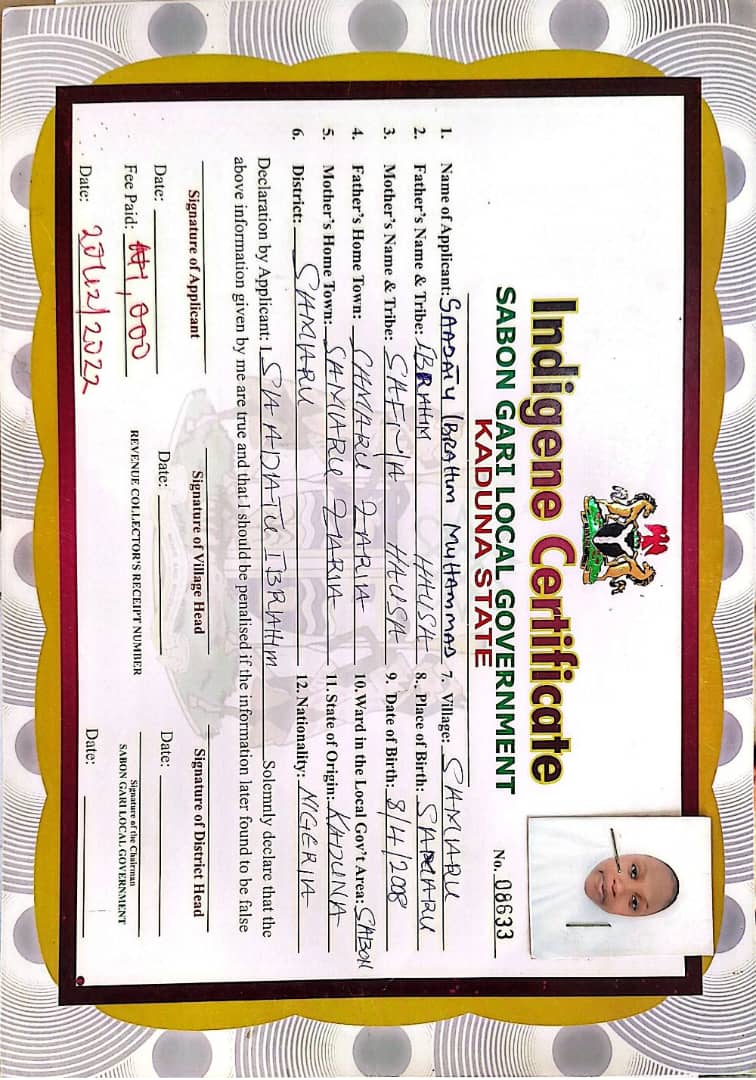 Indigene Certificate
SABON GARI LOCAL GOVERNMENT
KADUNA STATE
No. 08633
1. Name of Applicant: SAADATU IBRAHIM MUHAMMAD 7. Village: SAMARU
2. Father's Name & Tribe: IBRAHIM HAUSA 8. Place of Birth: SAMARU
3. Mother's Name & Tribe: SAFIYA HAUSA 9. Date of Birth: 8/4/2008
4. Father's Home Town: SAMARU ZARIA 10. Ward in the Local Gov't Area: SABON
5. Mother's Home Town: SAMARU ZARIA 11. State of Origin: KADUNA
6. District: SAMARU 12. Nationality: NIGERIA
Declaration by Applicant: I SAADATU IBRAHIM Solemnly declare that the
above information given by me are true and that I should be penalised if the information later found to be false
Signature of Applicant Signature of Village Head Signature of District Head
Date: Date: Date:
Fee Paid: ₦1,000 REVENUE COLLECTOR'S RECEIPT NUMBER Signature of the Chairman
SABON GARI LOCAL GOVERNMENT
Date: 20/12/2022 Date: